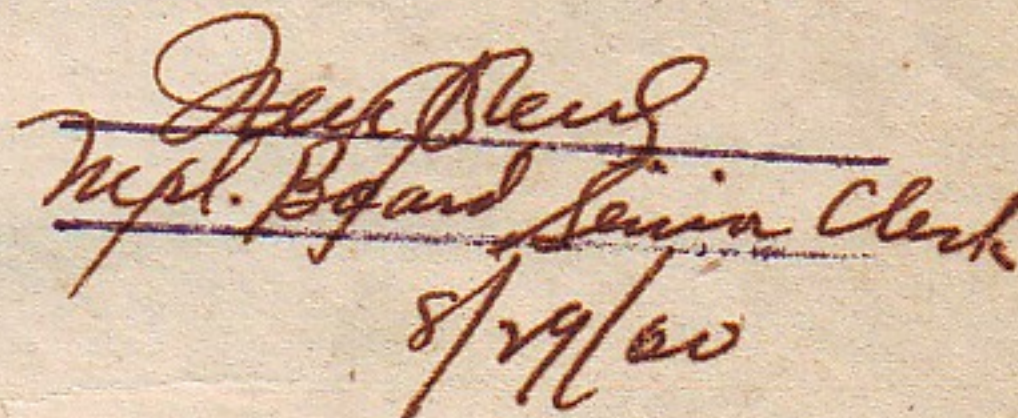 Mpl. Board Senior Clerk
8/29/00